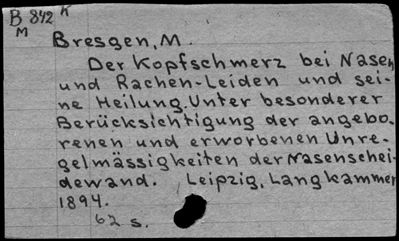 B 842 K
M
Bresgen, M.
Der Kopfschmerz bei Nasen
und Rachen-Leiden und sei-
ne Heilung. Unter besonderer
Berücksichtigung der angebo-
renen und erworbenen Unre-
gelmässigkeiten der Nasenschei-
dewand. Leipzig, Langkammer
1894.
62 s.